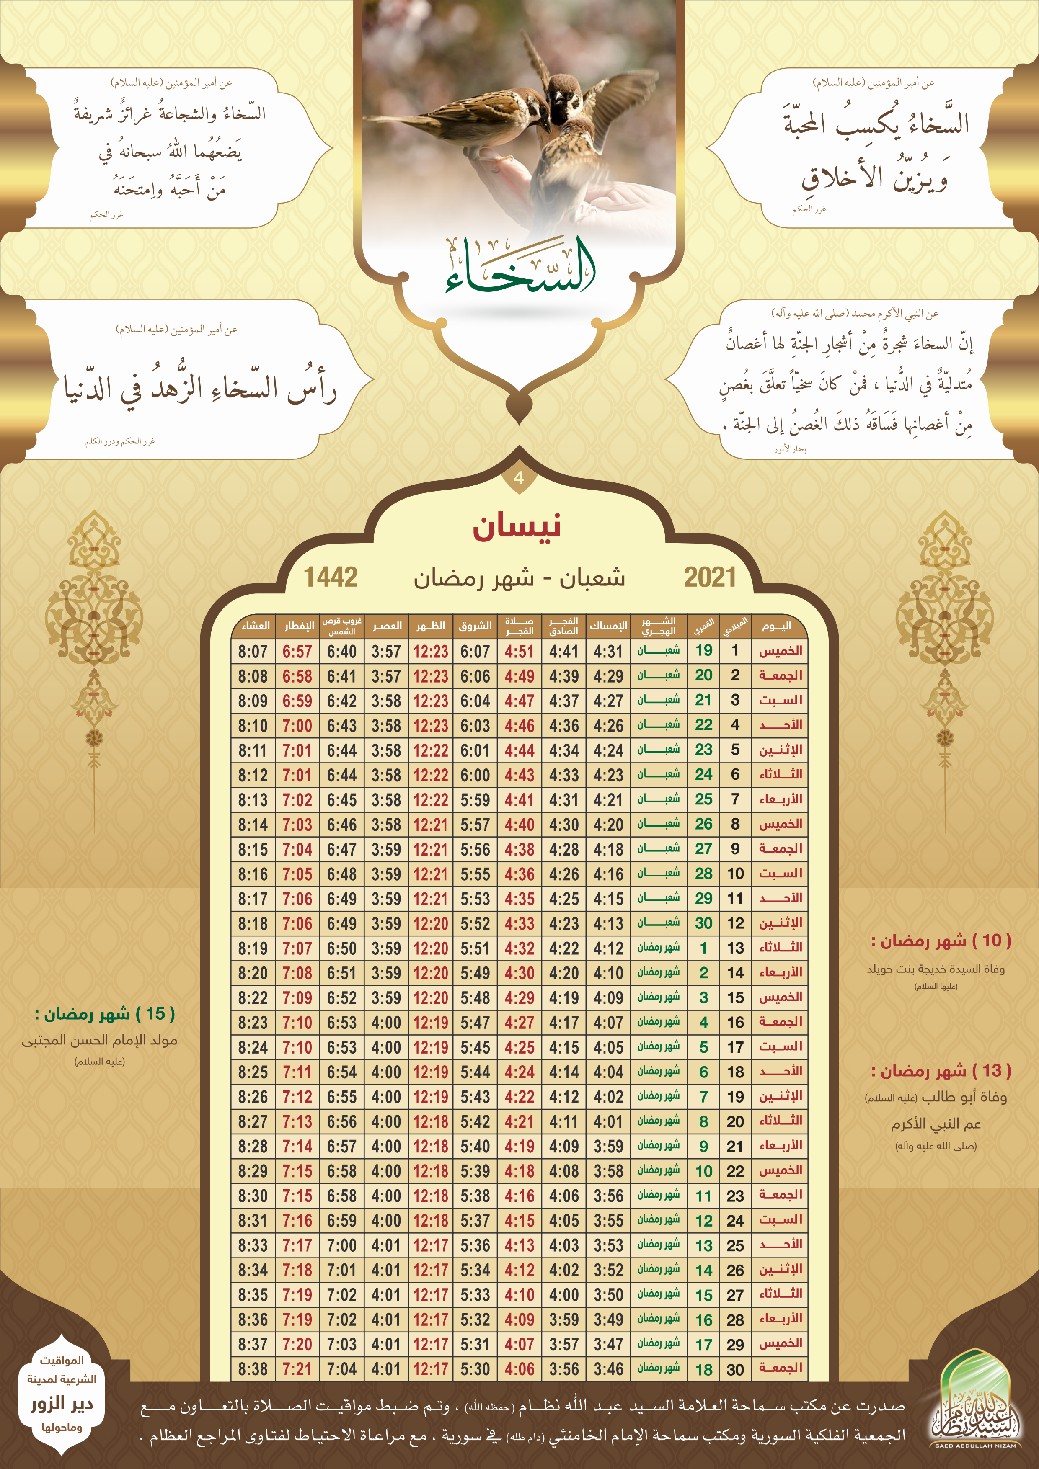 عن أمير المؤمنين (عليه السلام)
السَّخاءُ يُكسِبُ المحبّةَ
وَيُزَيِّنُ الأخلاقِ
غرر الحكم
عن أمير المؤمنين (عليه السلام)
السّخاءُ والشجاعةُ غرائزٌ شريفةٌ
يَضعُهُما اللهُ سبحانهُ في
مَنْ أَحَبَّهُ وامتحَنَهُ
غرر الحكم
السخاء
عن النبي الأكرم محمد (صلى الله عليه وآله)
إنّ السخاءَ شجرةٌ مِنْ أشجارِ الجنّة لها أغصانٌ
مُتدليّةٌ في الدُّنيا ، فمنْ كانَ سخيّاً تعلَّقَ بغُصنٍ
مِنْ أغصانِها فَسَاقَهُ ذلكَ الغُصنُ إلى الجنّة .
بحار الأنوار
عن أمير المؤمنين (عليه السلام)
رأسُ السّخاءِ الزُّهدُ في الدّنيا
غرر الحكم ودرر الكلم
4
نيسان
2021 شعبان - شهر رمضان 1442
اليوم الميلادي القمري الشهر الهجري الإمساك الفجر الصادق صلاة الفجر الشروق الظهر العصر غروب قرص الشمس الإفطار العشاء
الخميس 1 19 شعبان 4:31 4:41 4:51 6:07 12:23 3:57 6:40 6:57 8:07
الجمعة 2 20 شعبان 4:29 4:39 4:49 6:06 12:23 3:57 6:41 6:58 8:08
السبت 3 21 شعبان 4:27 4:37 4:47 6:04 12:23 3:58 6:42 6:59 8:09
الأحد 4 22 شعبان 4:26 4:36 4:46 6:03 12:23 3:58 6:43 7:00 8:10
الإثنين 5 23 شعبان 4:24 4:34 4:44 6:01 12:22 3:58 6:44 7:01 8:11
الثلاثاء 6 24 شعبان 4:23 4:33 4:43 6:00 12:22 3:58 6:44 7:01 8:12
الأربعاء 7 25 شعبان 4:21 4:31 4:41 5:59 12:22 3:58 6:45 7:02 8:13
الخميس 8 26 شعبان 4:20 4:30 4:40 5:57 12:21 3:58 6:46 7:03 8:14
الجمعة 9 27 شعبان 4:18 4:28 4:38 5:56 12:21 3:59 6:47 7:04 8:15
السبت 10 28 شعبان 4:16 4:26 4:36 5:55 12:21 3:59 6:48 7:05 8:16
الأحد 11 29 شعبان 4:15 4:25 4:35 5:53 12:21 3:59 6:49 7:06 8:17
الإثنين 12 30 شعبان 4:13 4:23 4:33 5:52 12:20 3:59 6:49 7:06 8:18
الثلاثاء 13 1 شهر رمضان 4:12 4:22 4:32 5:51 12:20 3:59 6:50 7:07 8:19
الأربعاء 14 2 شهر رمضان 4:10 4:20 4:30 5:49 12:20 3:59 6:51 7:08 8:20
الخميس 15 3 شهر رمضان 4:09 4:19 4:29 5:48 12:20 3:59 6:52 7:09 8:22
الجمعة 16 4 شهر رمضان 4:07 4:17 4:27 5:47 12:19 4:00 6:53 7:10 8:23
السبت 17 5 شهر رمضان 4:05 4:15 4:25 5:45 12:19 4:00 6:53 7:10 8:24
الأحد 18 6 شهر رمضان 4:04 4:14 4:24 5:44 12:19 4:00 6:54 7:11 8:25
الإثنين 19 7 شهر رمضان 4:02 4:12 4:22 5:43 12:19 4:00 6:55 7:12 8:26
الثلاثاء 20 8 شهر رمضان 4:01 4:11 4:21 5:42 12:18 4:00 6:56 7:13 8:27
الأربعاء 21 9 شهر رمضان 3:59 4:09 4:19 5:40 12:18 4:00 6:57 7:14 8:28
الخميس 22 10 شهر رمضان 3:58 4:08 4:18 5:39 12:18 4:00 6:58 7:15 8:29
الجمعة 23 11 شهر رمضان 3:56 4:06 4:16 5:38 12:18 4:00 6:58 7:15 8:30
السبت 24 12 شهر رمضان 3:55 4:05 4:15 5:37 12:18 4:00 6:59 7:16 8:31
الأحد 25 13 شهر رمضان 3:53 4:03 4:13 5:36 12:17 4:01 7:00 7:17 8:33
الإثنين 26 14 شهر رمضان 3:52 4:02 4:12 5:34 12:17 4:01 7:01 7:18 8:34
الثلاثاء 27 15 شهر رمضان 3:50 4:00 4:10 5:33 12:17 4:01 7:02 7:19 8:35
الأربعاء 28 16 شهر رمضان 3:49 3:59 4:09 5:32 12:17 4:01 7:02 7:19 8:36
الخميس 29 17 شهر رمضان 3:47 3:57 4:07 5:31 12:17 4:01 7:03 7:20 8:37
الجمعة 30 18 شهر رمضان 3:46 3:56 4:06 5:30 12:17 4:01 7:04 7:21 8:38
( 10 ) شهر رمضان :
وفاة السيدة خديجة بنت خويلد
(عليها السلام)
( 13 ) شهر رمضان :
وفاة أبو طالب (عليه السلام)
عم النبي الأكرم
(صلى الله عليه وآله)
( 15 ) شهر رمضان :
مولد الإمام الحسن المجتبى
(عليه السلام)
صدرت عن مكتب سماحة العلامة السيد عبد الله نظام (حفظه الله) ، وتم ضبط مواقيت الصلاة بالتعاون مع
الجمعية الفلكية السورية ومكتب سماحة الإمام الخامنئي (دام ظله) في سورية ، مع مراعاة الاحتياط لفتاوى المراجع العظام .
المواقيت
الشرعية لمدينة
دير الزور
وماحولها
السيد عبد الله نظام
SAED ABDULLAH NIZAM